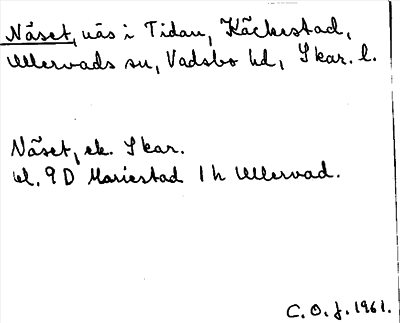 Näset, näs i Tidan, Käckestad,
Ullervads sn, Vadsbo hd, Skar. l.
Näset, ek. Skar.
bl. 9 D Mariestad 1 h Ullervad.
C. O. J. 1961.